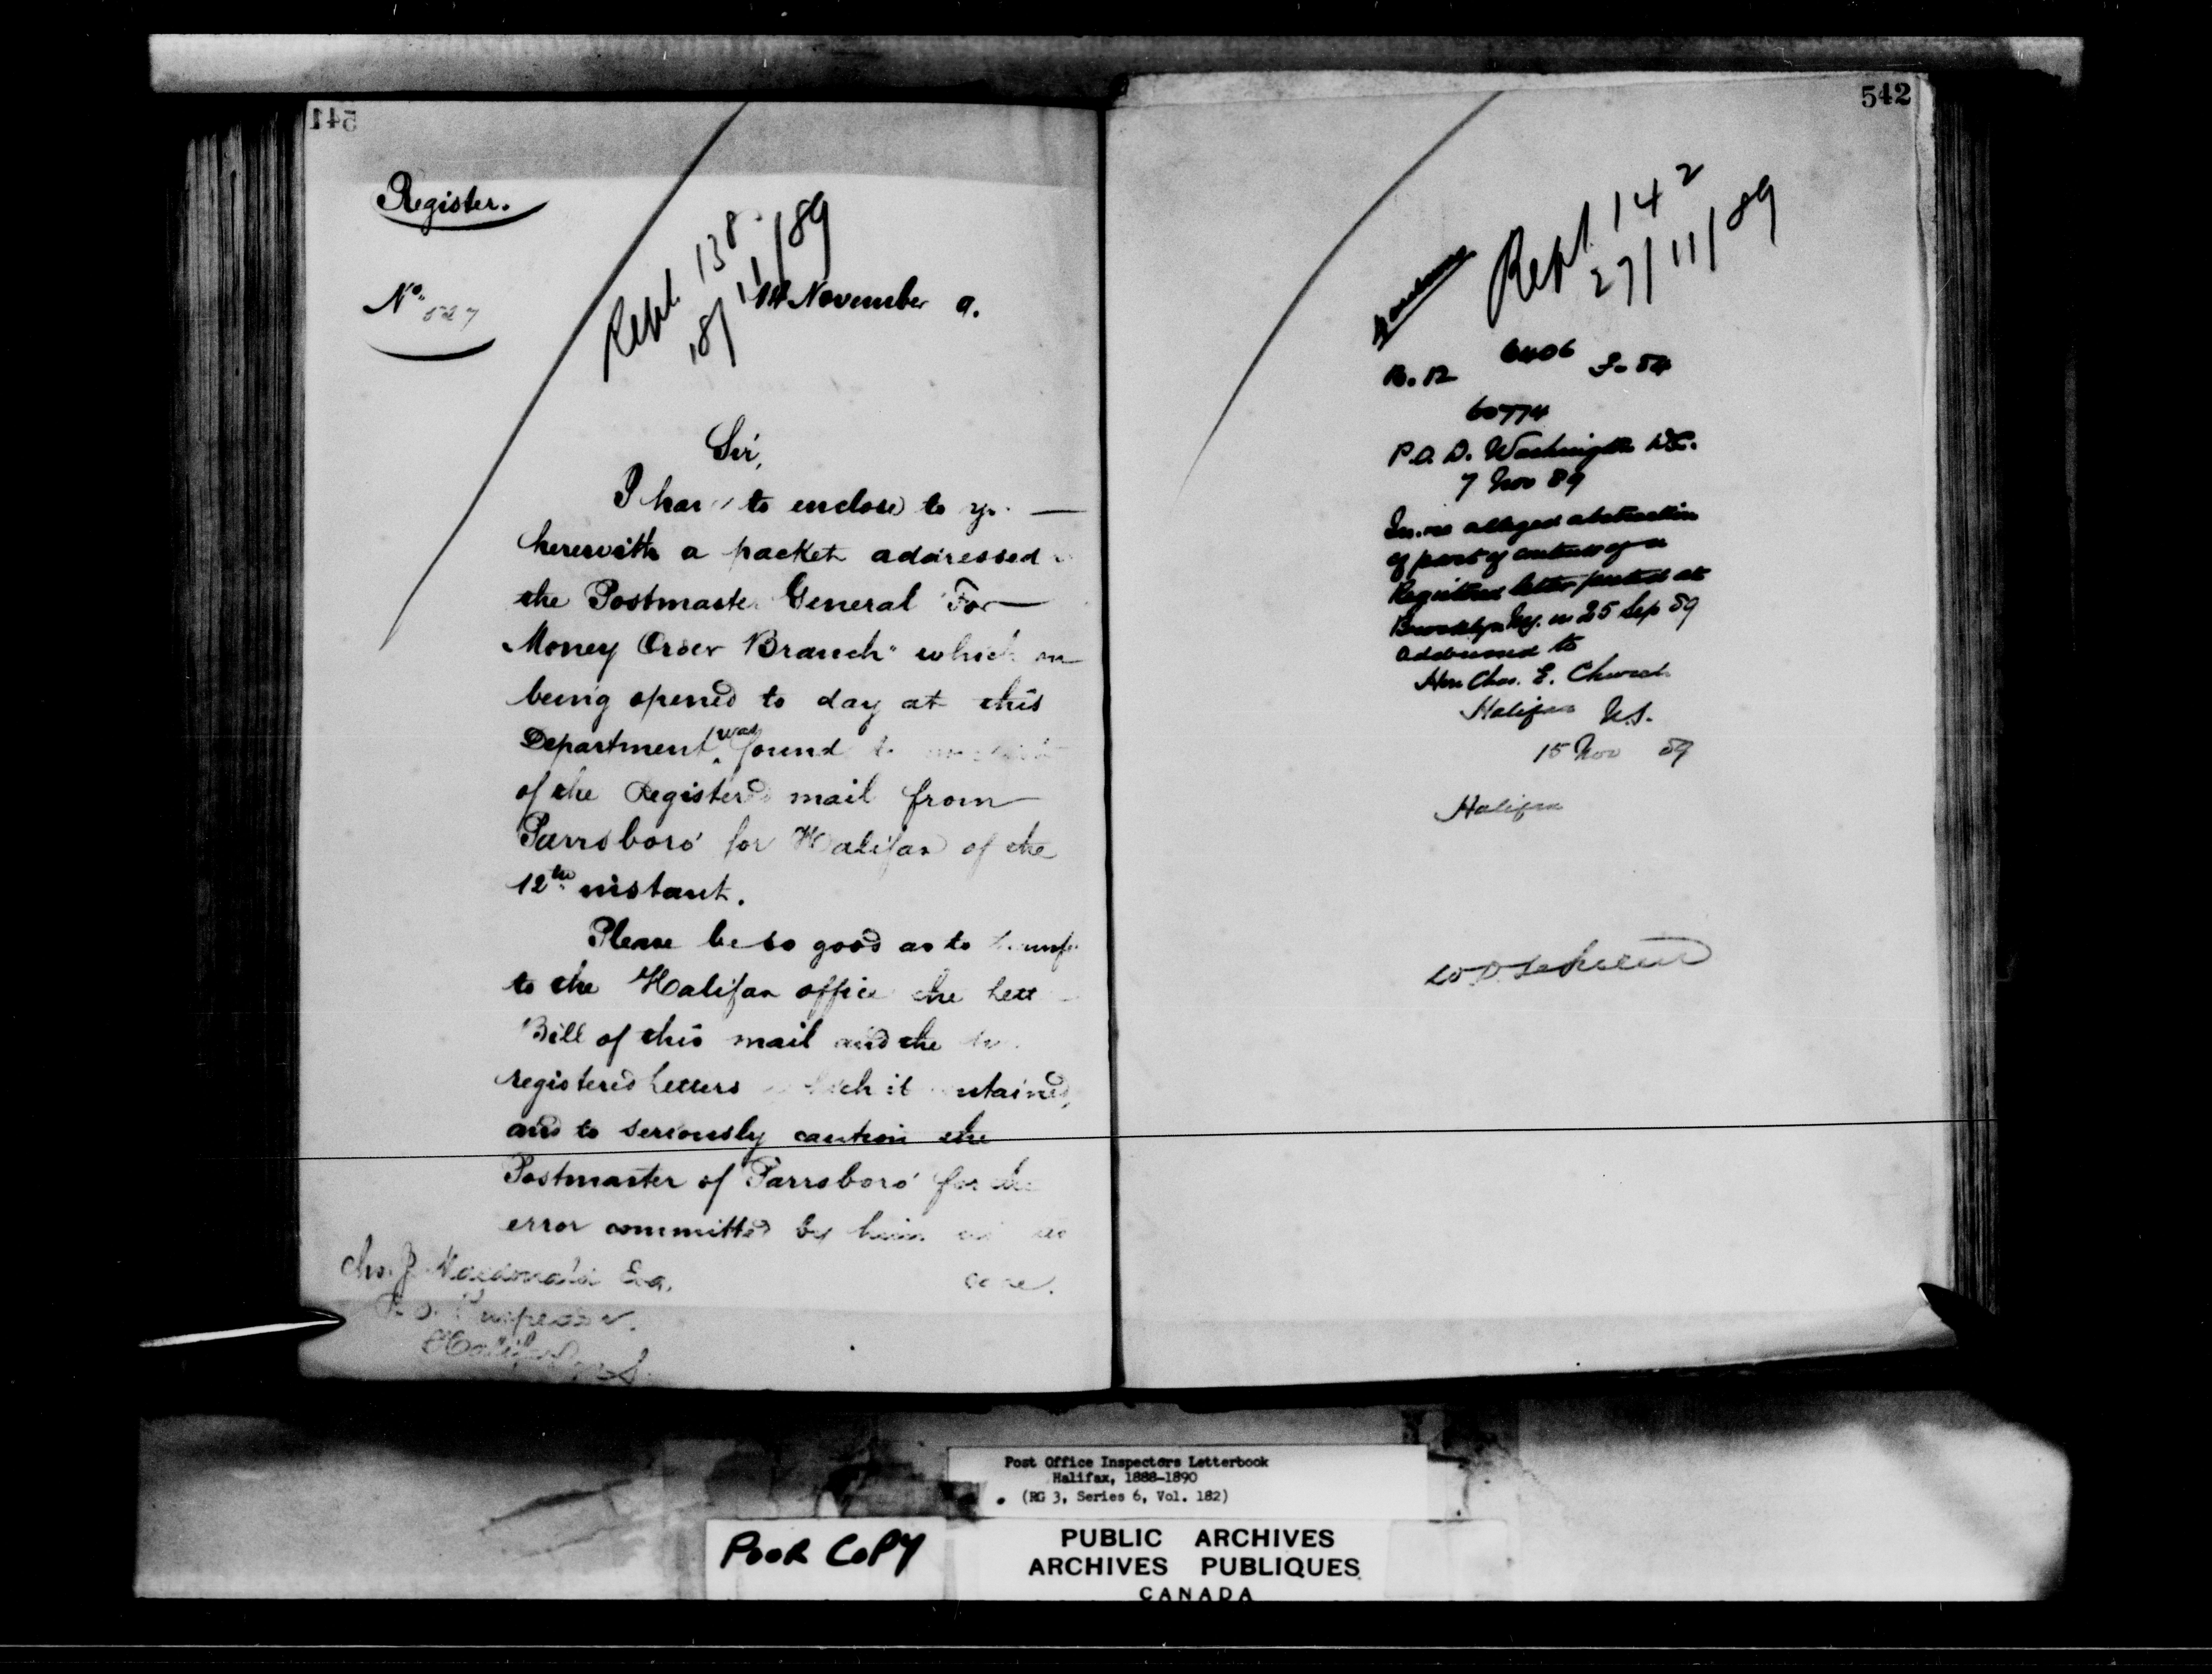 541
Register.
No. 527
Rept. 138.
18/11/89
14 November 9.
Sir,
I have to enclose to yo
herewith a packet addressed
the Postmaster General "For
Money Order Branch" which on
being opened to day at this
Department, was found to
of the Registered mail from
Parrsboro' for Halifax of the
12th instant.
Please be so good as to
to the Halifax office the Lett
Bill of this mail and the
registered Letters which it contained,
and to seriously caution the
Postmaster of Parrsboro' for the
error committed by him
case.
Chs. J. Macdonald Esq.
P.O. Inspector.
Halifax N.S.
542
Rept. 142
27/11/89
6406
60774
P.O.D. Washington D.C.
7 Nov 89
In re alleged abstraction
of part of contents of a
Registered letter posted at
Brooklyn N.Y. on 25 Sep 89
addressed to
Hon Chas. E. Church
Halifax N.S.
15 Nov 89
Halifax
Post Office Inspectors Letterbook
Halifax, 1888-1890
(RG 3, Series 6, Vol. 182)
POOR COPY
PUBLIC ARCHIVES
ARCHIVES PUBLIQUES
CANADA